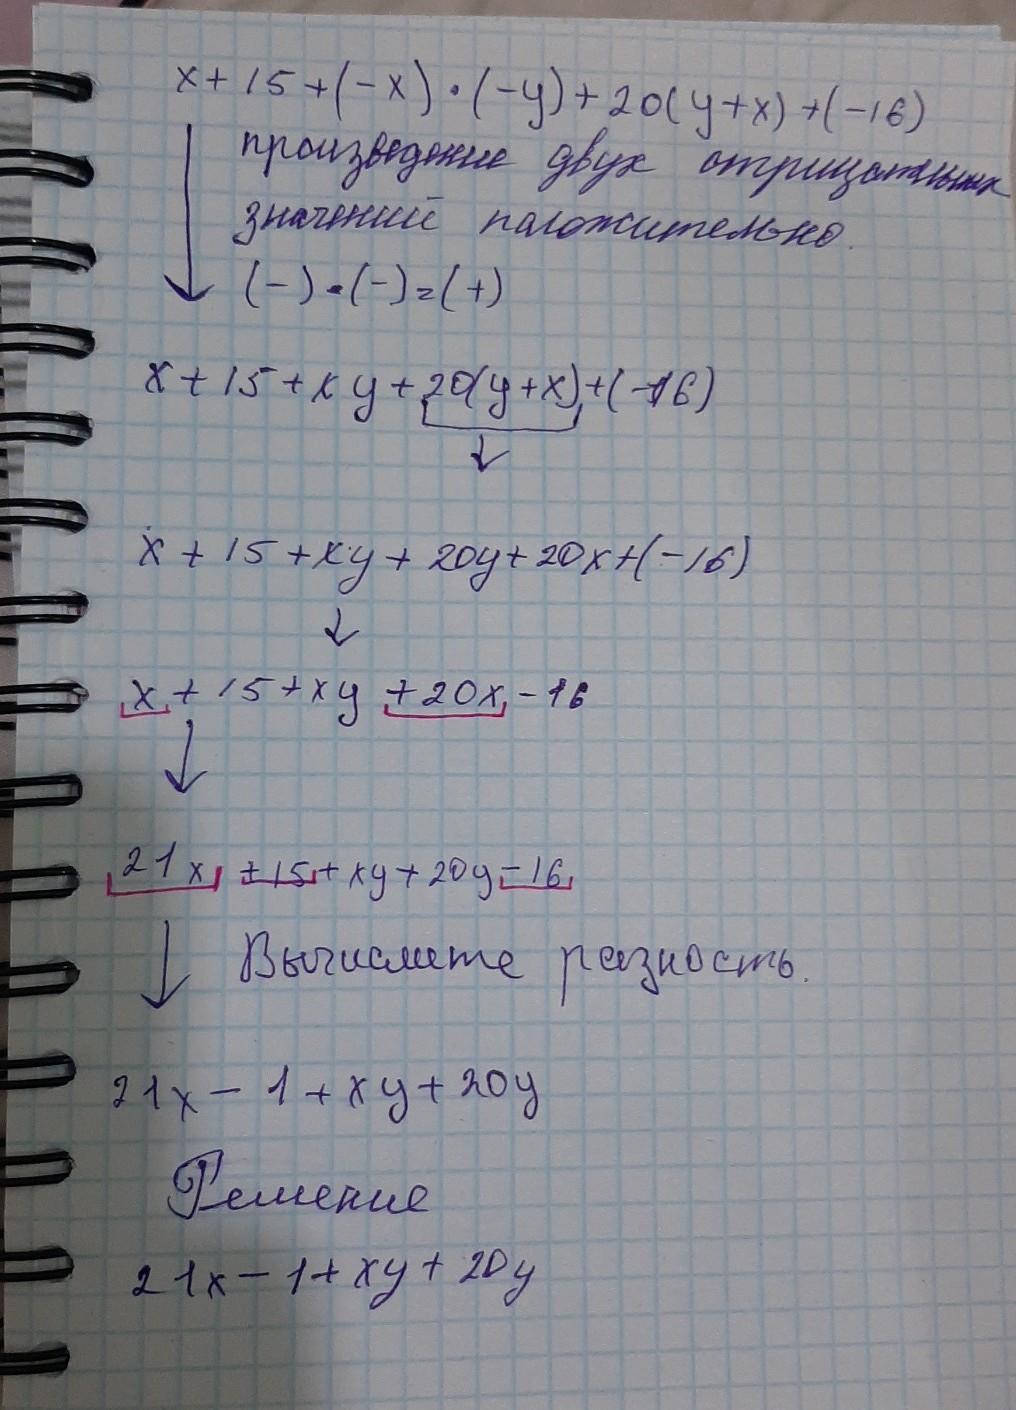 x + 15 + (-x) · (-y) + 20(y + x) + (-16)
произведение двух отрицательных
значений положительно.
(-) · (-) = (+)
x + 15 + xy + 20(y + x) + (-16)
x + 15 + xy + 20y + 20x + (-16)
x + 15 + xy + 20x - 16
21x + 15 + xy + 20y - 16
Вычислите разность.
21x - 1 + xy + 20y
Решение
21x - 1 + xy + 20y